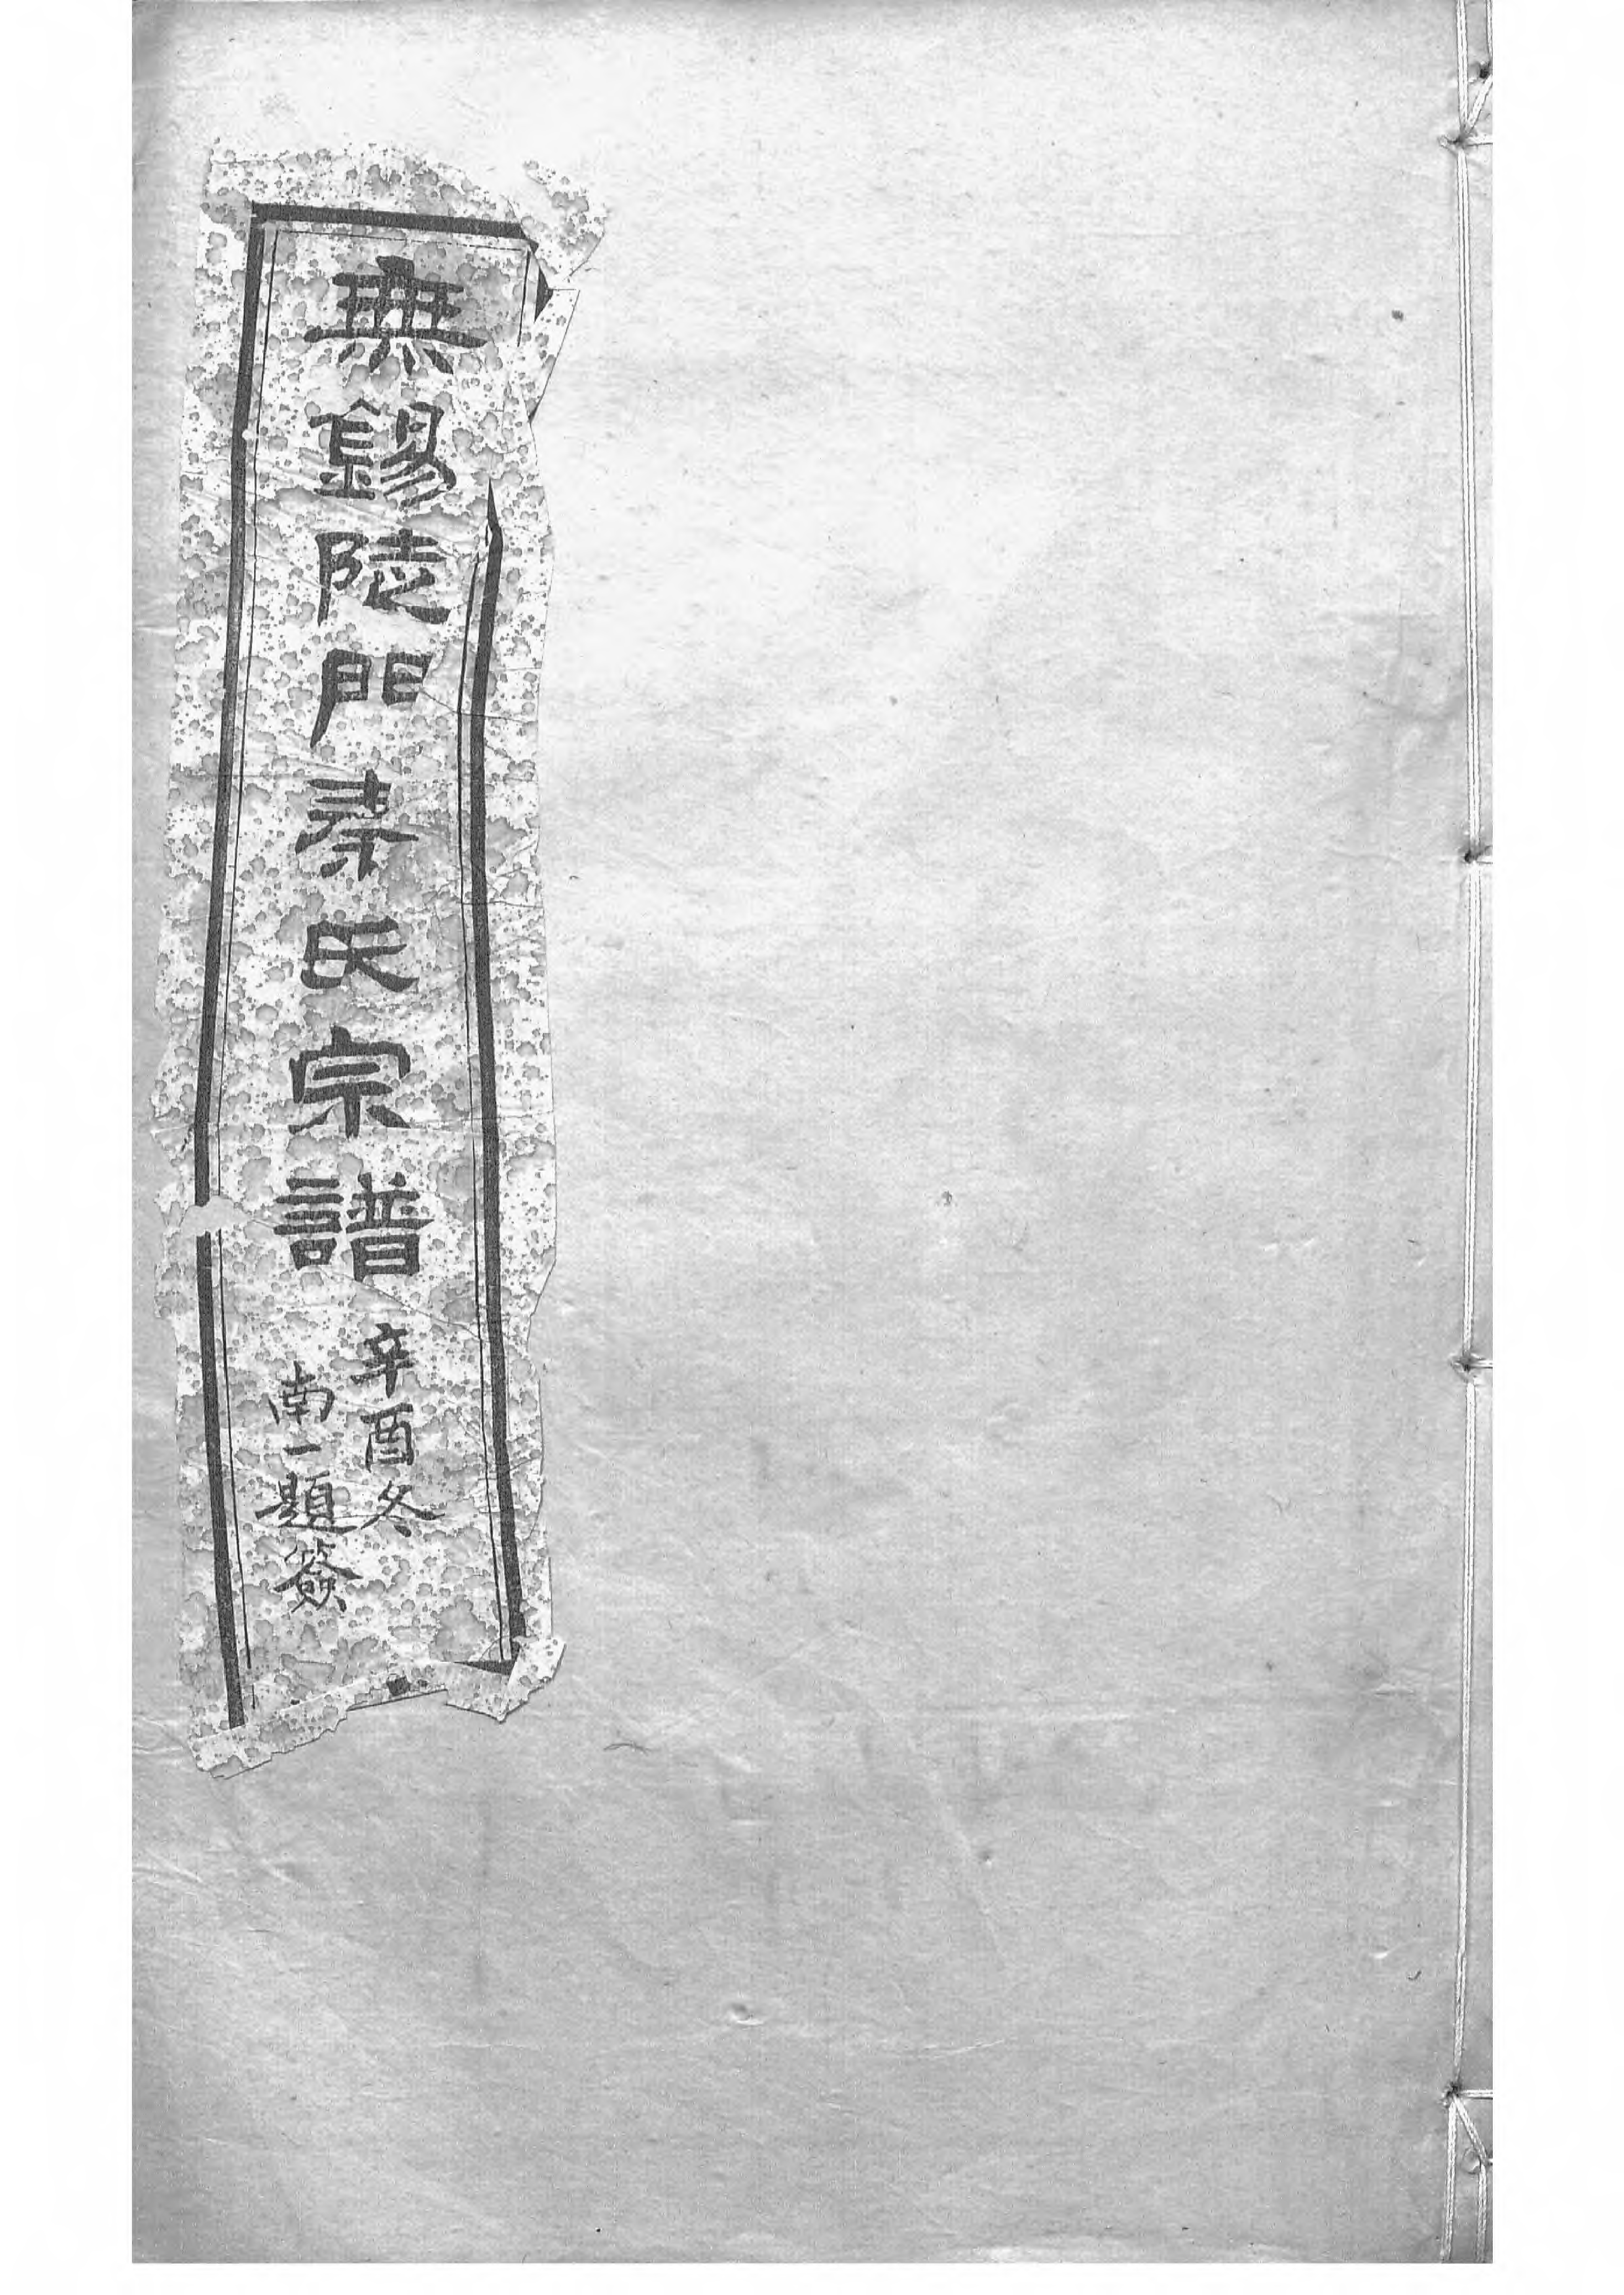 無錫陡門秦氏宗譜
辛酉冬
南一題簽